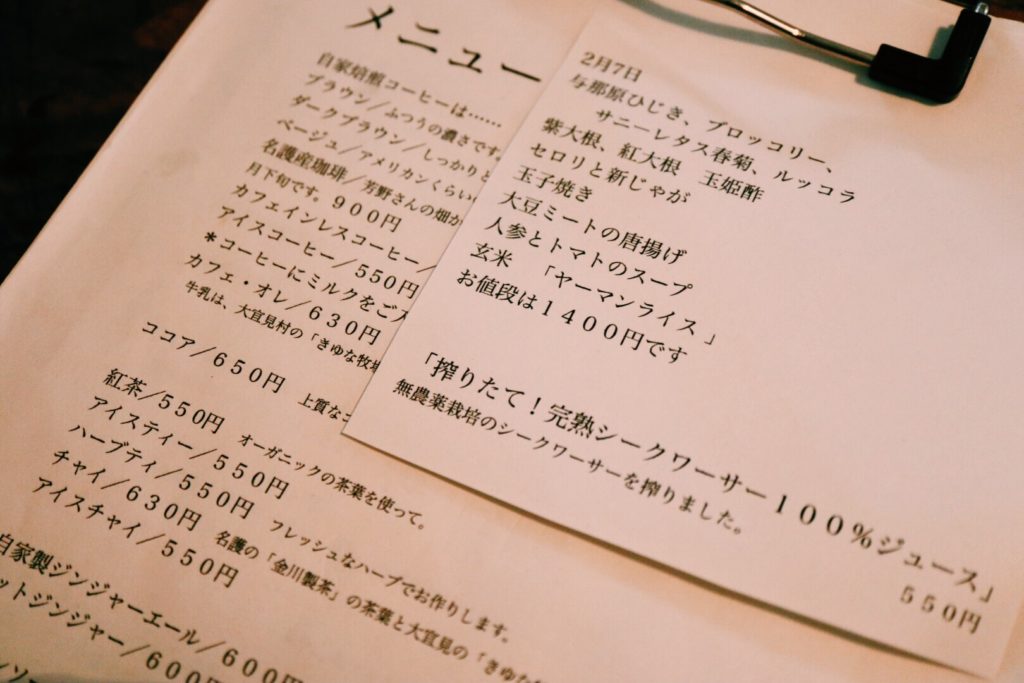 メニュー
自家焙煎コーヒーは……
ブラウン／ふつうの濃さです。
ダークブラウン／しっかりと
ベージュ／アメリカンくらい
名護産珈琲／芳野さんの畑か
月下旬です。900円
カフェインレスコーヒー／
アイスコーヒー／550円
＊コーヒーにミルクをご入
カフェ・オレ／630円
牛乳は、大宜見村の「きゆな牧場
ココア／650円　上質な
紅茶／550円　オーガニックの茶葉を使って。
アイスティー／550円
ハーブティ／550円　フレッシュなハーブでお作りします。
チャイ／630円　名護の「金川製茶」の茶葉と大宜見の「きゆな
アイスチャイ／550円
自家製ジンジャーエール／600円
ットジンジャー／600
2月7日
与那原ひじき、ブロッコリー、
サニーレタス春菊、ルッコラ
紫大根、紅大根　玉姫酢
セロリと新じゃが
玉子焼き
大豆ミートの唐揚げ
人参とトマトのスープ
玄米　「ヤーマンライス」
お値段は1400円です
「搾りたて！完熟シークワーサー100％ジュース」
無農薬栽培のシークワーサーを搾りました。
550円